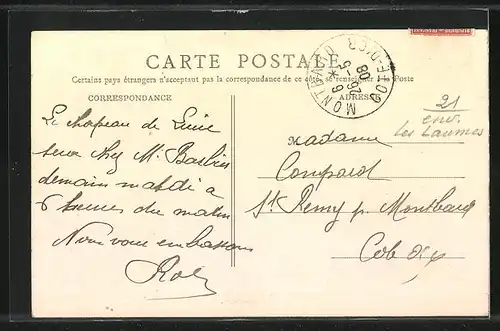 CARTE POSTALE
Certains pays étrangers n'acceptant pas la correspondance de ce côté se renseigner à la Poste
CORRESPONDANCE
ADRESSE
MONTBARD CÔTE-D'OR
6 * 26 -5 08
21
env.
Les Laumes
Le chapeau de Lucie
sera chez M. Barbier
demain mardi à
6 heures du matin
Nous vous embrassons
Madame
Compard
St Remy p. Montbard
Cote d'or